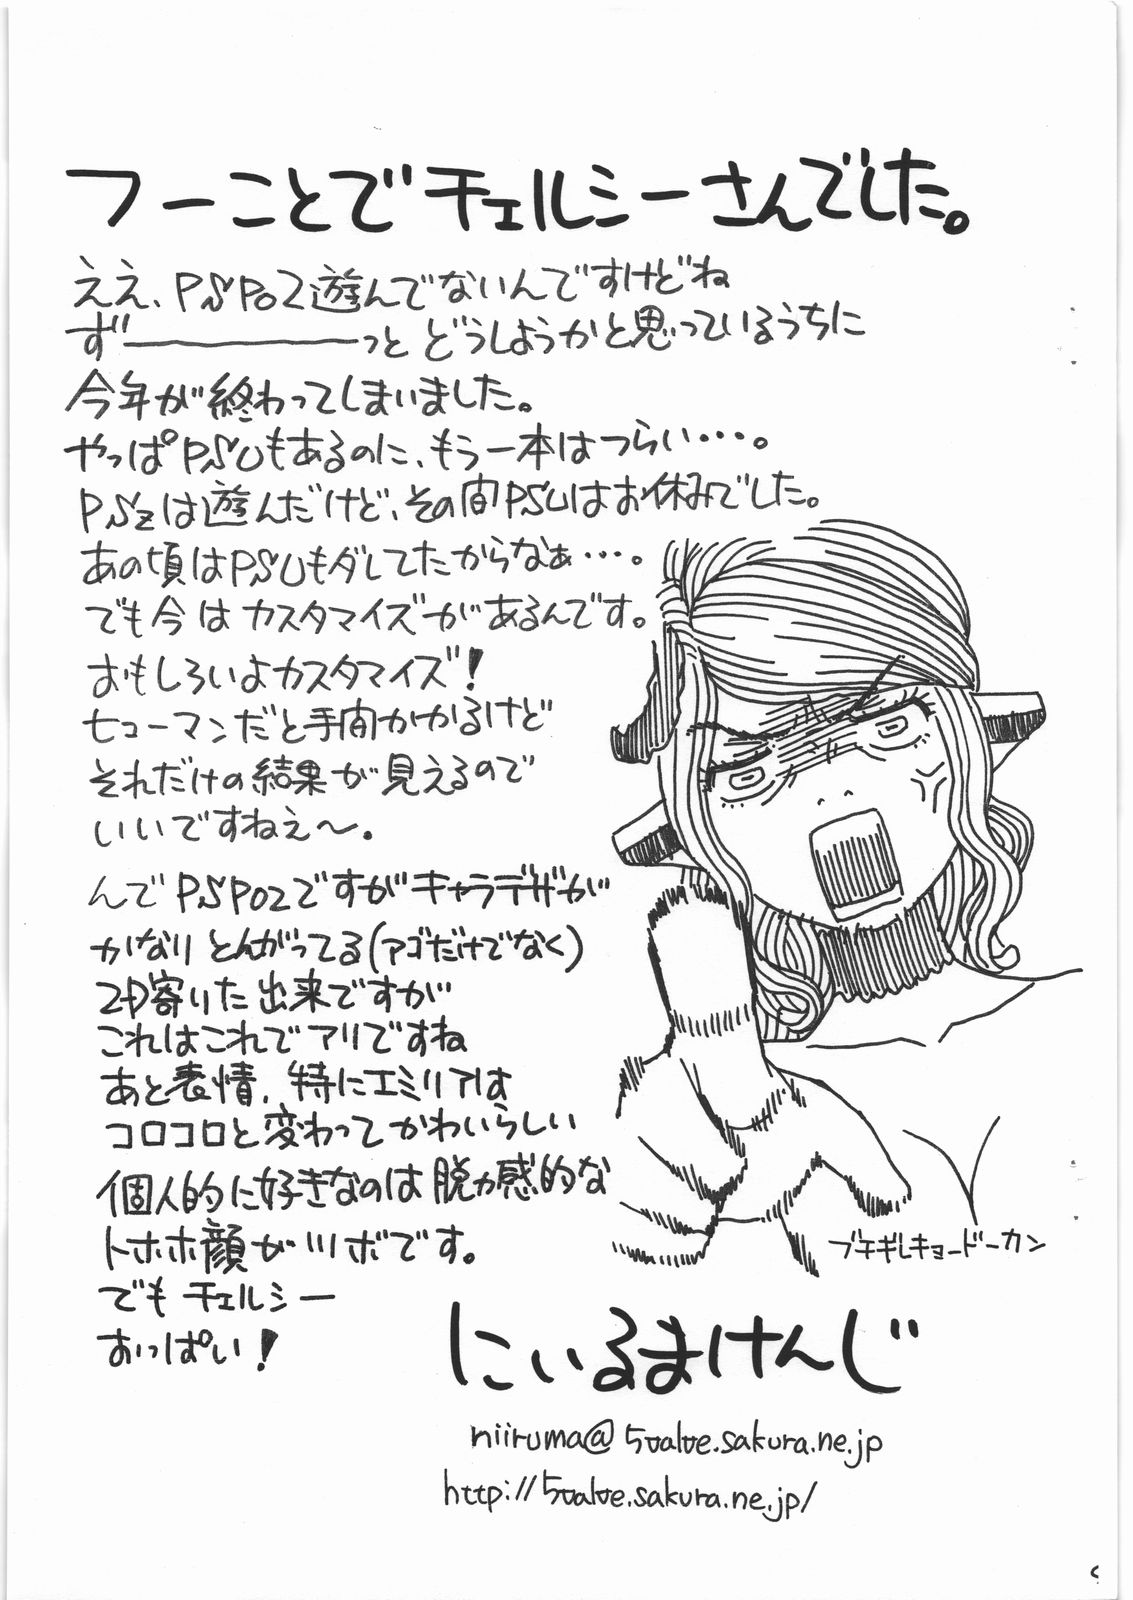 フーことでチェルシーさんでした。
ええ、PSPo2遊んでないんですけどね
ず――――っと どうしようかと思っているうちに
今年が終わってしまいました。
やっぱPSUもあるのに、もう一本はつらい・・・。
PSZは遊んだけど、その間PSUはお休みでした。
あの頃はPSUもダレてたからなぁ・・・。
でも今はカスタマイズがあるんです。
おもしろいよカスタマイズ!
ヒューマンだと手間かかるけど
それだけの結果が見えるので
いいですねぇ〜。
んでPSPo2ですがキャラデザが
かなりとんがってる(アゴだけでなく)
2D寄りた出来ですが
これはこれでアリですね
あと表情、特にエミリアは
コロコロと変わってかわいらしい
個人的に好きなのは脱力感的な
トホホ顔がツボです。
でもチェルシー
おっぱい!
ブチギレキョードーカン
にいるまけんじ
niiruma@5valve.sakura.ne.jp
http://5valve.sakura.ne.jp/